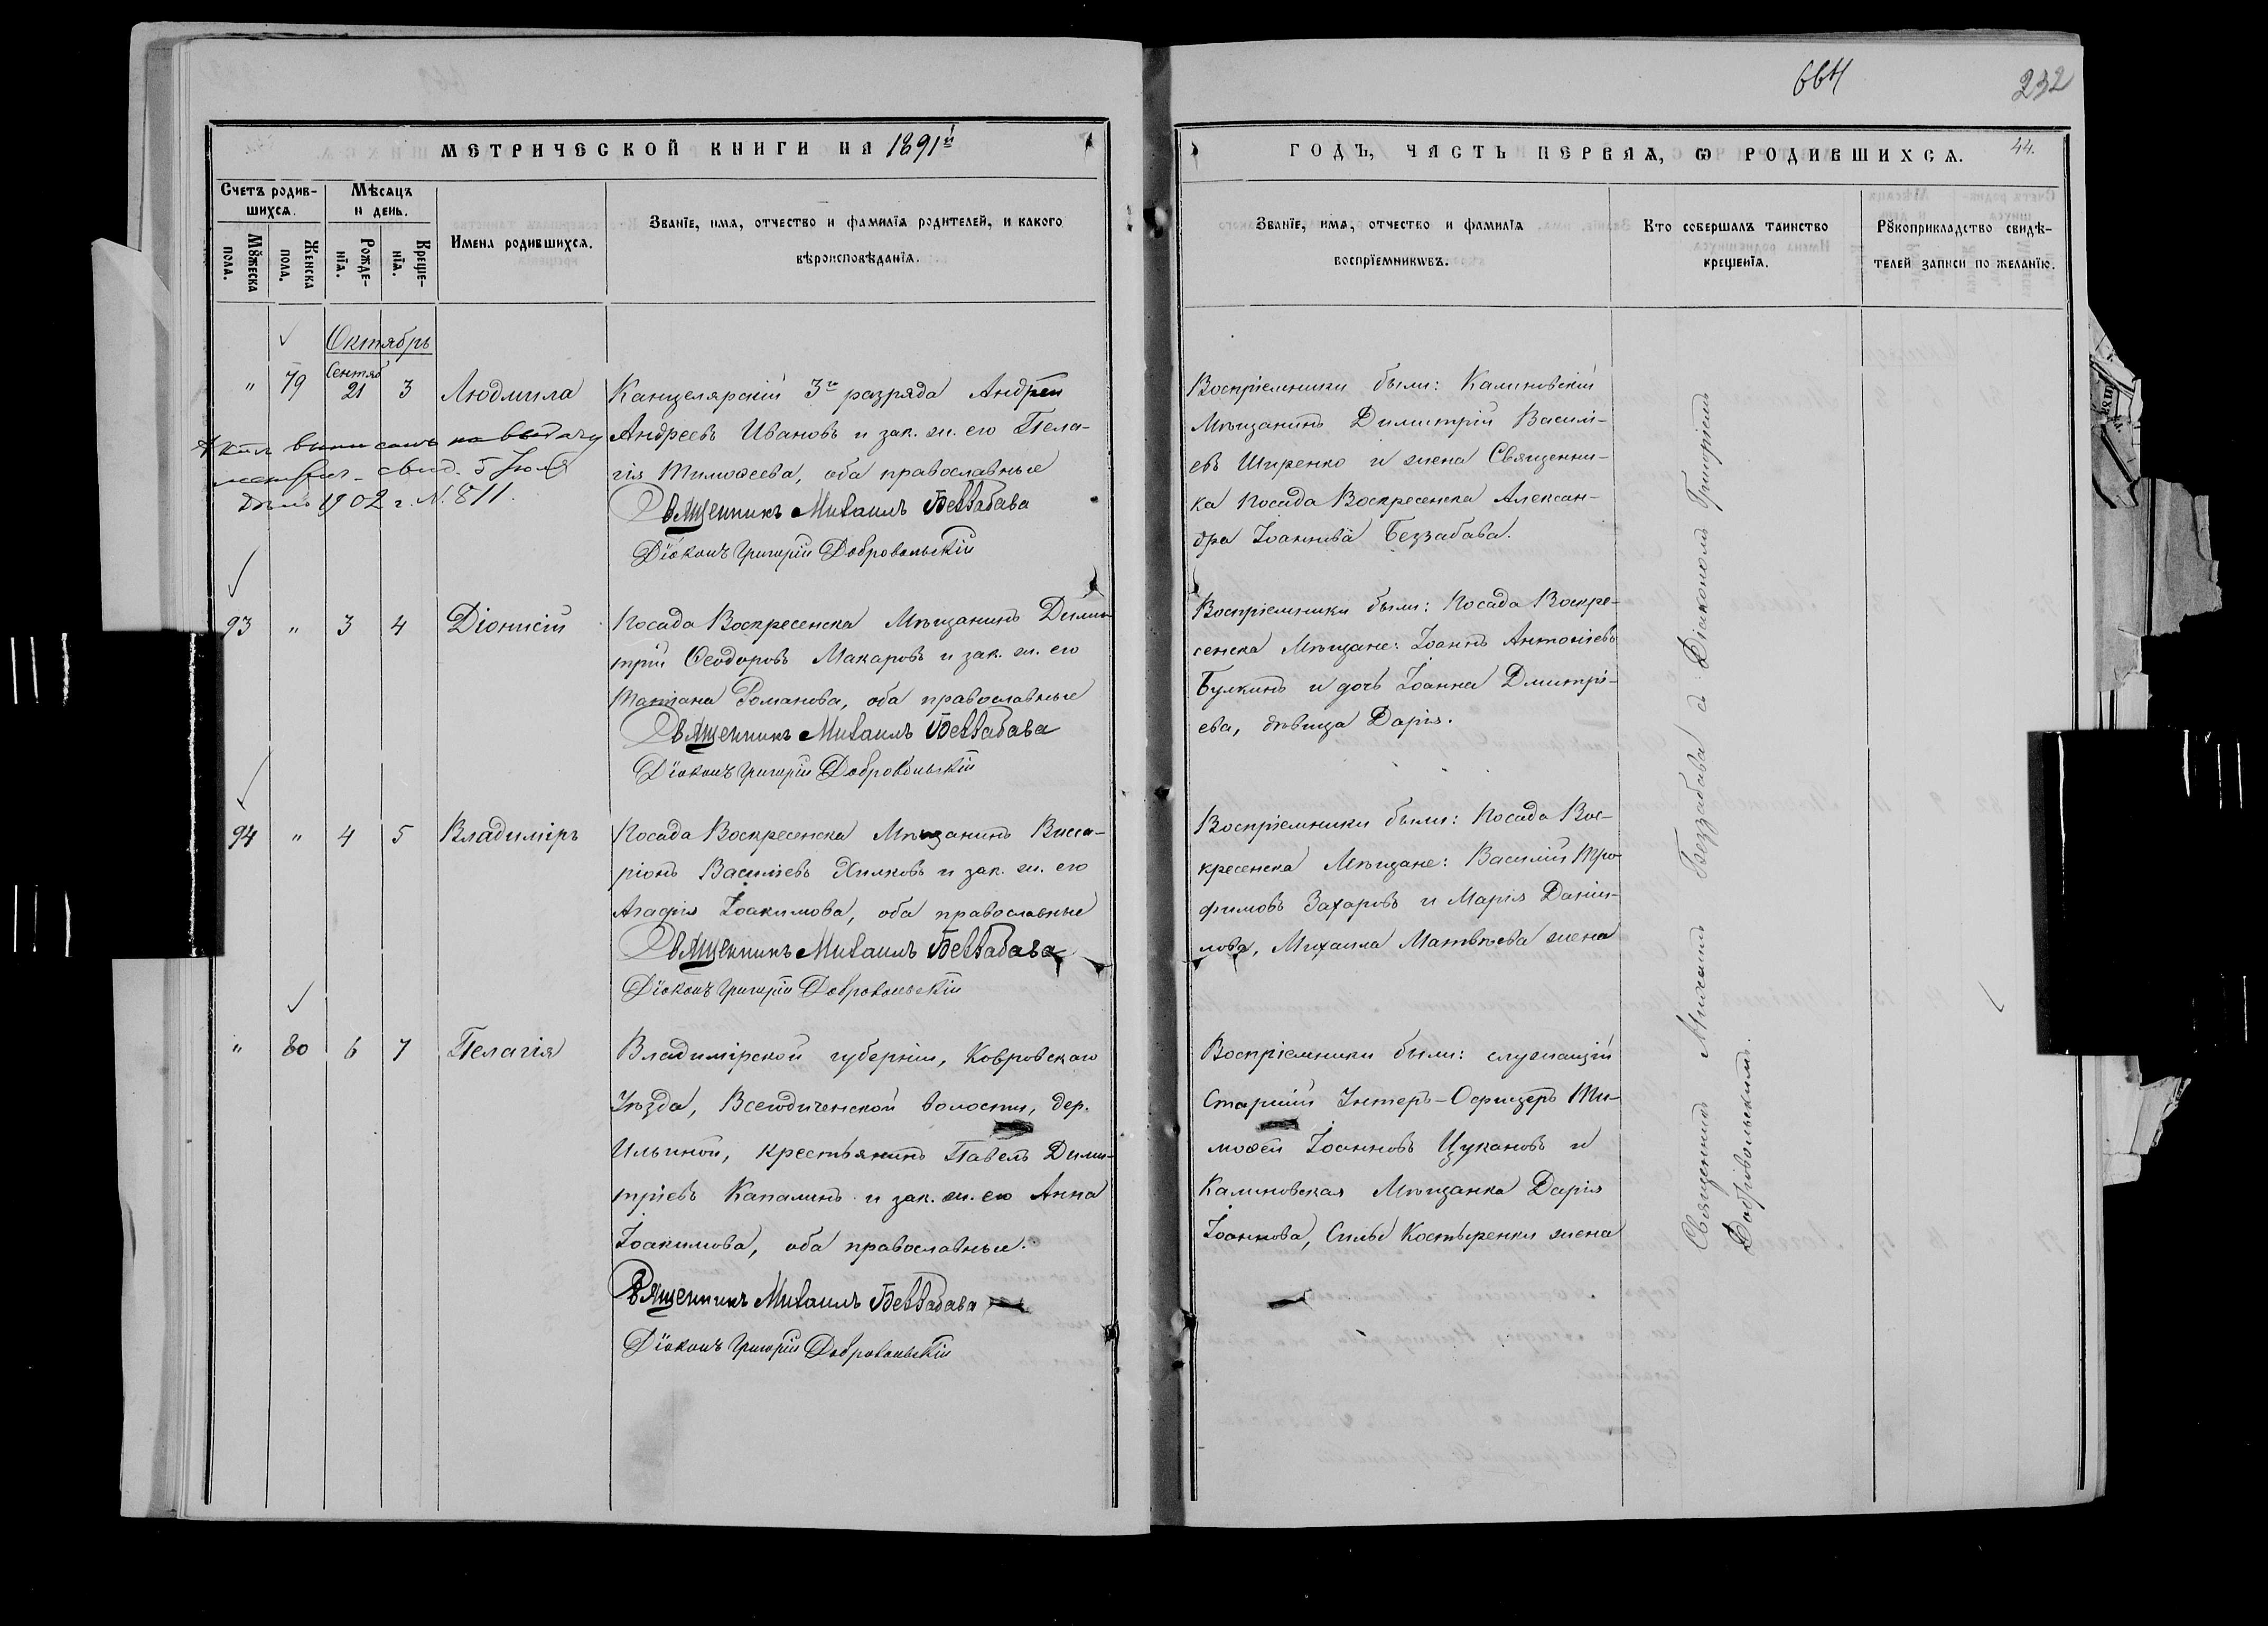 664
232
МЕТРИЧЕСКОЙ КНИГИ НА 1891й
ГОДЪ, ЧАСТЬ ПЕРВАЯ, Ѡ РОДИВШИХСѦ.
44.
Счетъ родив-
шихсѧ.
Мѣсяцъ
и день.
Мꙋжеска
пола.
Женска
пола.
Рожде-
нїѧ.
Креще-
нїѧ.
Имена родившихсѧ.
Званїе, имѧ, отчество и фамилїѧ родителей, и какого
вѣроисповѣданїѧ.
Званїе, имѧ, отчество и фамилїѧ
воспрїемникѡвъ.
Кто совершалъ таинство
крещенїѧ.
Рꙋкоприкладство свидѣ-
телей записи по желанїю.
Октябрь
" 79 Сентяб 21 3 Людмила
Канцелярскій 3го разряда Андрей
Андреевъ Ивановъ и зак. ж. его Пела-
гія Тимоѳеева, оба православные
Священникъ Михаилъ Беззабава
Діаконъ Григорій Добровольскій
Актъ выписанъ на выдачу
метрич. свид. 5 Іюля
дня 1902 г. N. 811.
Воспріемники были: Калиновскій
Мѣщанинъ Димитрій Василі-
евъ Ширенко и жена Священни-
ка посада Воскресенска Алексан-
дра Іоаннова Беззабава.
93 " 3 4 Діонисій
Посада Воскресенска Мѣщанинъ Дими-
трій Ѳеодоровъ Макаровъ и зак. ж. его
Татіана Романова, оба православные
Священникъ Михаилъ Беззабава
Діаконъ Григорій Добровольскій
Воспріемники были: Посада Воскре-
сенска Мѣщане: Іоаннъ Антоніевъ
Булкинъ и дочь Іоанна Дмитрі-
ева, дѣвица Дарія.
94 " 4 5 Владиміръ
Посада Воскресенска Мѣщанинъ Висса-
ріонъ Василіевъ Хилковъ и зак. ж. его
Агафія Іоакимова, оба православные
Священникъ Михаилъ Беззабава
Діаконъ Григорій Добровольскій
Воспріемники были: Посада Вос-
кресенска Мѣщане: Василій Тро-
фимовъ Захаровъ и Марія Даніи-
лова, Михаила Матвѣева жена
" 80 6 7 Пелагія
Владимірской губерніи, Ковровскаго
Уѣзда, Всегодической волости, дер.
Ильиной, крестьянинъ Павелъ Дими-
тріевъ Капалинъ и зак. ж. его Анна
Іоакимова, оба православные.
Священникъ Михаилъ Беззабава
Діаконъ Григорій Добровольскій
Воспріемники были: служащій
Старшій Унтеръ-Офицеръ Ти-
моѳей Іоанновъ Цукановъ и
Калиновская Мѣщанка Дарія
Іоаннова, Силы Костыренки жена
Священникъ Михаилъ Беззабава съ Діакономъ Григоріемъ
Добровольскимъ.